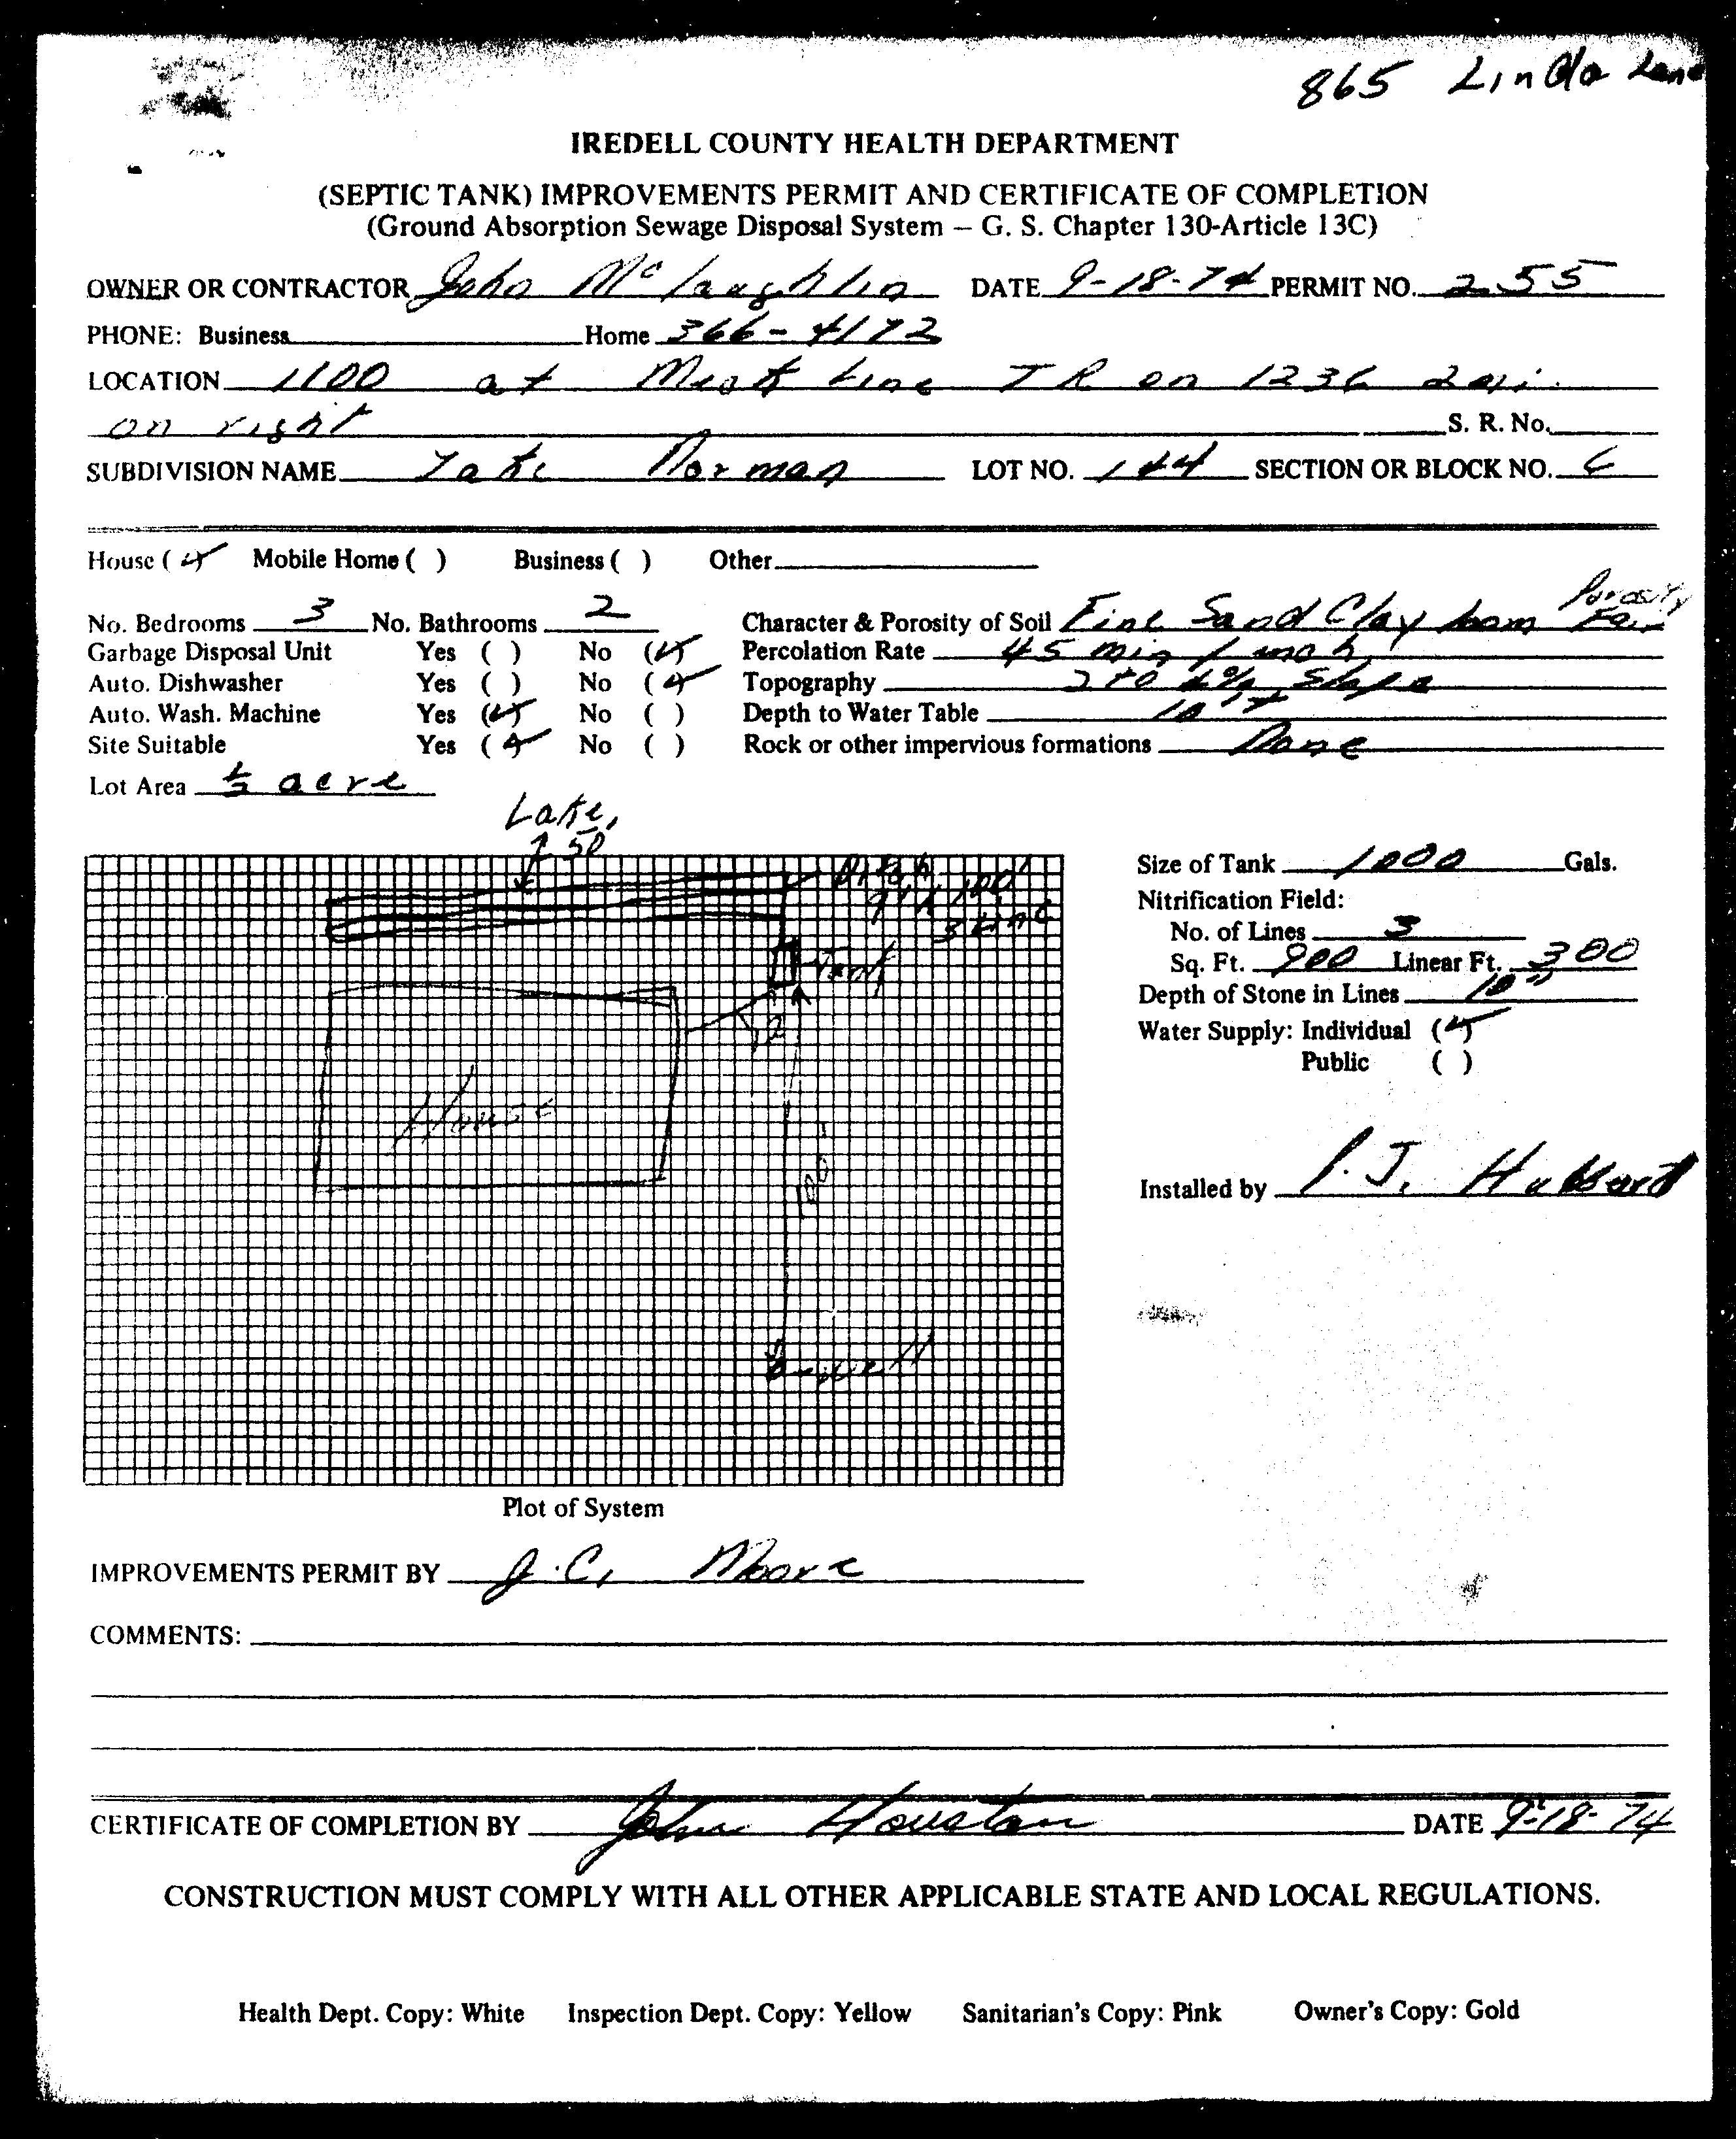 865 Linda Lane
IREDELL COUNTY HEALTH DEPARTMENT
(SEPTIC TANK) IMPROVEMENTS PERMIT AND CERTIFICATE OF COMPLETION
(Ground Absorption Sewage Disposal System – G. S. Chapter 130-Article 13C)
OWNER OR CONTRACTOR John McLaughlin DATE 9-18-74 PERMIT NO. 255
PHONE: Business Home 366-4172
LOCATION 1100 at Line TR on 1236 2 mi.
on right S. R. No.
SUBDIVISION NAME Lake Norman LOT NO. 144 SECTION OR BLOCK NO. C
House (✓) Mobile Home ( ) Business ( ) Other
No. Bedrooms 3 No. Bathrooms 2 Character & Porosity of Soil Fine Sand Clay loam Porosity Fair
Garbage Disposal Unit Yes ( ) No (✓) Percolation Rate 45 min / inch
Auto. Dishwasher Yes ( ) No (✓) Topography 2 to 4% Slope
Auto. Wash. Machine Yes (✓) No ( ) Depth to Water Table 10'+
Site Suitable Yes (✓) No ( ) Rock or other impervious formations None
Lot Area ½ acre
Lake
50'
Ditch
3' x 100'
3 Line
Tank
House
100'
well
Size of Tank 1000 Gals.
Nitrification Field:
No. of Lines 3
Sq. Ft. 900 Linear Ft. 300
Depth of Stone in Lines 10"
Water Supply: Individual (✓)
Public ( )
Installed by P. J. Hubbard
Plot of System
IMPROVEMENTS PERMIT BY J. C. Moore
COMMENTS:
CERTIFICATE OF COMPLETION BY John Houston DATE 9-18-74
CONSTRUCTION MUST COMPLY WITH ALL OTHER APPLICABLE STATE AND LOCAL REGULATIONS.
Health Dept. Copy: White Inspection Dept. Copy: Yellow Sanitarian's Copy: Pink Owner's Copy: Gold